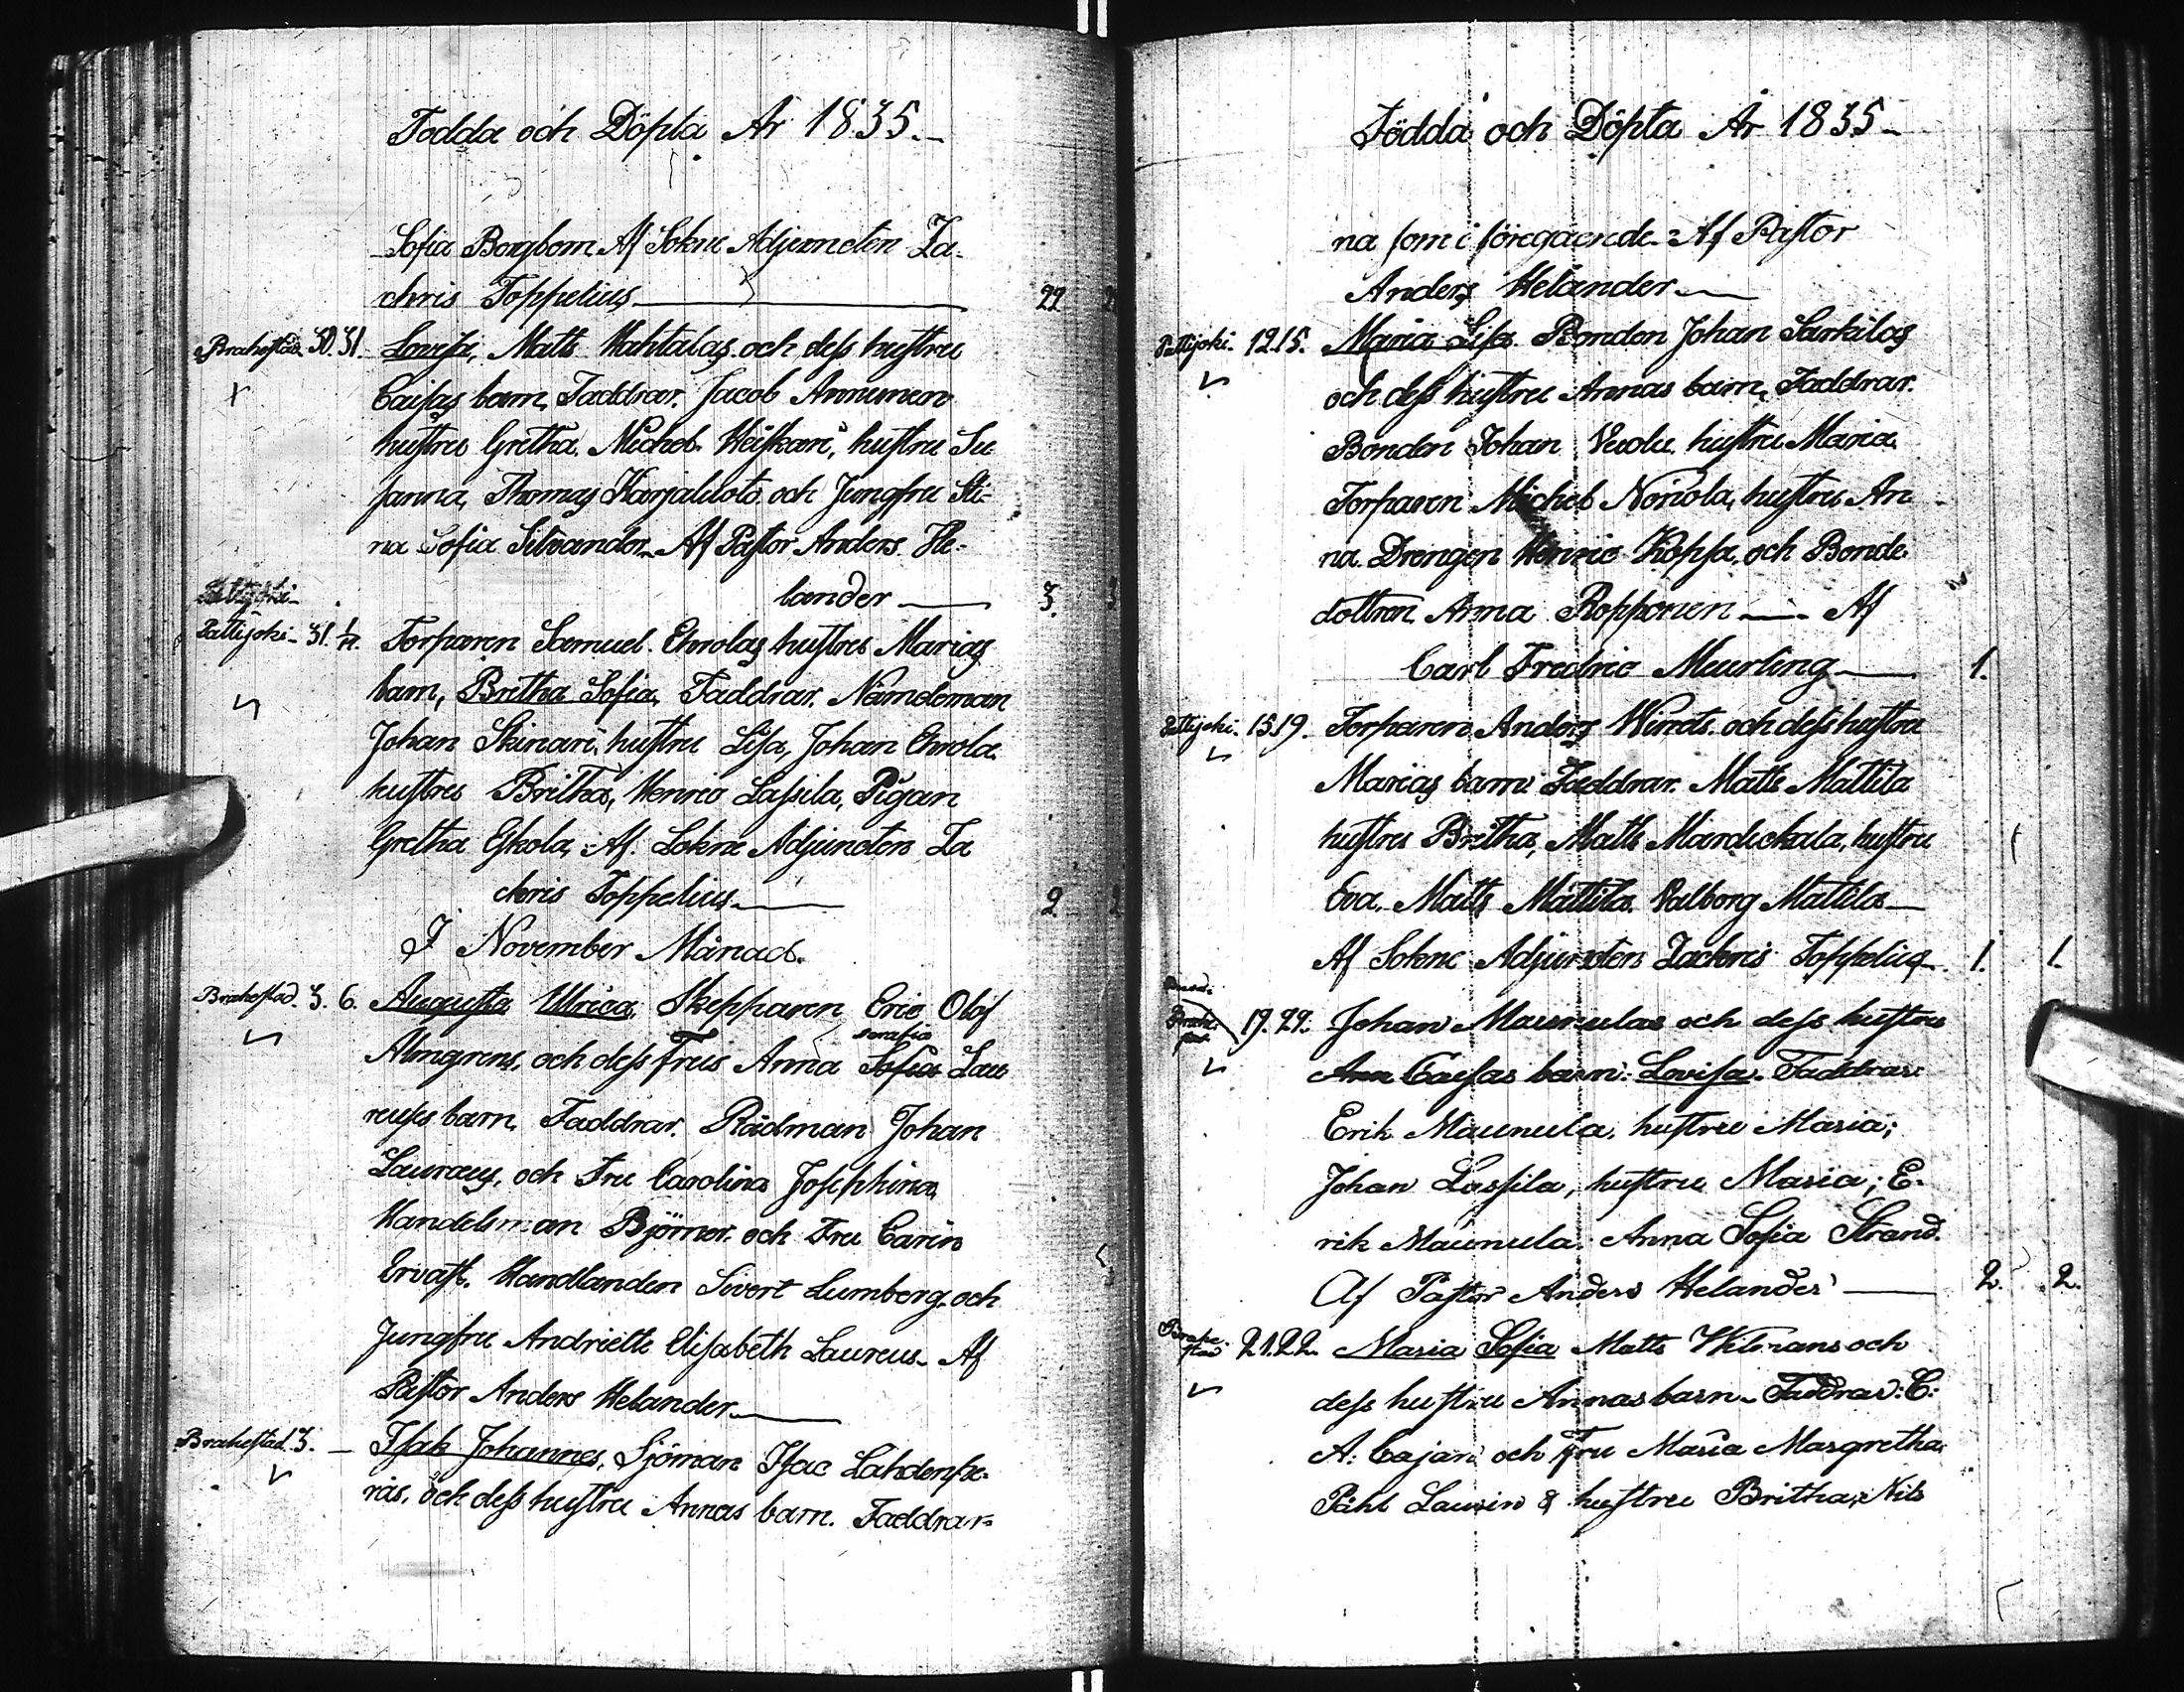 Födda och Döpta År 1835.
Sofia Borgbom Af Sokne Adjuncten Za-
chris Toppelius 22
Brahestad. 30. 31. Lovisa, Matts Mahtalas och dess hustru
Caisas barn, Faddrar. Jacob Annunen
hustru Gretha. Michel Heiskari, hustru Su
sanna, Thomas Karjaluoto och Jungfru Sti-
na Sofia Silvander. Af Pastor Anders He-
lander 3.
Pattijoki
Pattijoki 31. 1/11. Torparen Samuel Ehrolas hustru Marias
barn, Britha Sofia, Faddrar. Nämdeman
Johan Skinari, hustru Lisa, Johan Ehrola
hustru Britha, Henric Lassila, Pigan
Gretha Eskola, Af. Sokne Adjuncten Za
chris Toppelius 2
I November Månad.
Brahestad. 3. 6. Augusta Ulrica, Skepparen Eric Olof
serafia
Almgrens, och dess Frus Anna Sofia Lau
reuss barn. Faddrar. Rådman Johan
Laureus, och Fru Carolina Josephina
Handelsman Björner och Fru Carin
Ervast. Handlanden Sivert Lumberg, och
Jungfru Andriette Elisabeth Laureus. Af
Pastor Anders Helander
Brahestad. 3. Isak Johannes, Sjöman Isac Lahdenpe-
räs, och dess hustru Annas barn. Faddrar
Födda och Döpta År 1835
na som i föregående. Af Pastor
Anders Helander
Pattijoki. 12. 15. Maria Lisa. Bonden Johan Sarkilas
och dess hustru Annas barn, Faddrar.
Bonden Johan hustru Maria
Torparen Michel Noriola, hustru An
na. Drengen Henric Kopsa, och Bonde-
dottren Anna Ropponen Af
Carl Fredric Meurling 1.
Pattijoki. 15. 19. Torparen Anders och dess hustru
Marias barn Faddrar. Matts Mattila
hustru Britha, Matts Mardickala, hustru
Eva. Matts Mattila. Valborg Mattila
Af Sokne Adjuncten Zachris Toppelius 1. 1.
Brahe-
stad. 19. 22. Johan Maunulas och dess hustru
Ann Caisas barn: Lovisa. Faddrar:
Erik Maunula, hustru Maria;
Johan Lassila, hustru Maria; E-
rik Maunula. Anna Sofia Strand.
Af Pastor Anders Helander 2. 2.
Brahe-
stad 21. 22. Maria Sofia Matts Wilmans och
dess hustru Annas barn. Faddrar: C:
A: Cajan och Fru Maria Margretha
Påhl Laurin & hustru Britha, Nils